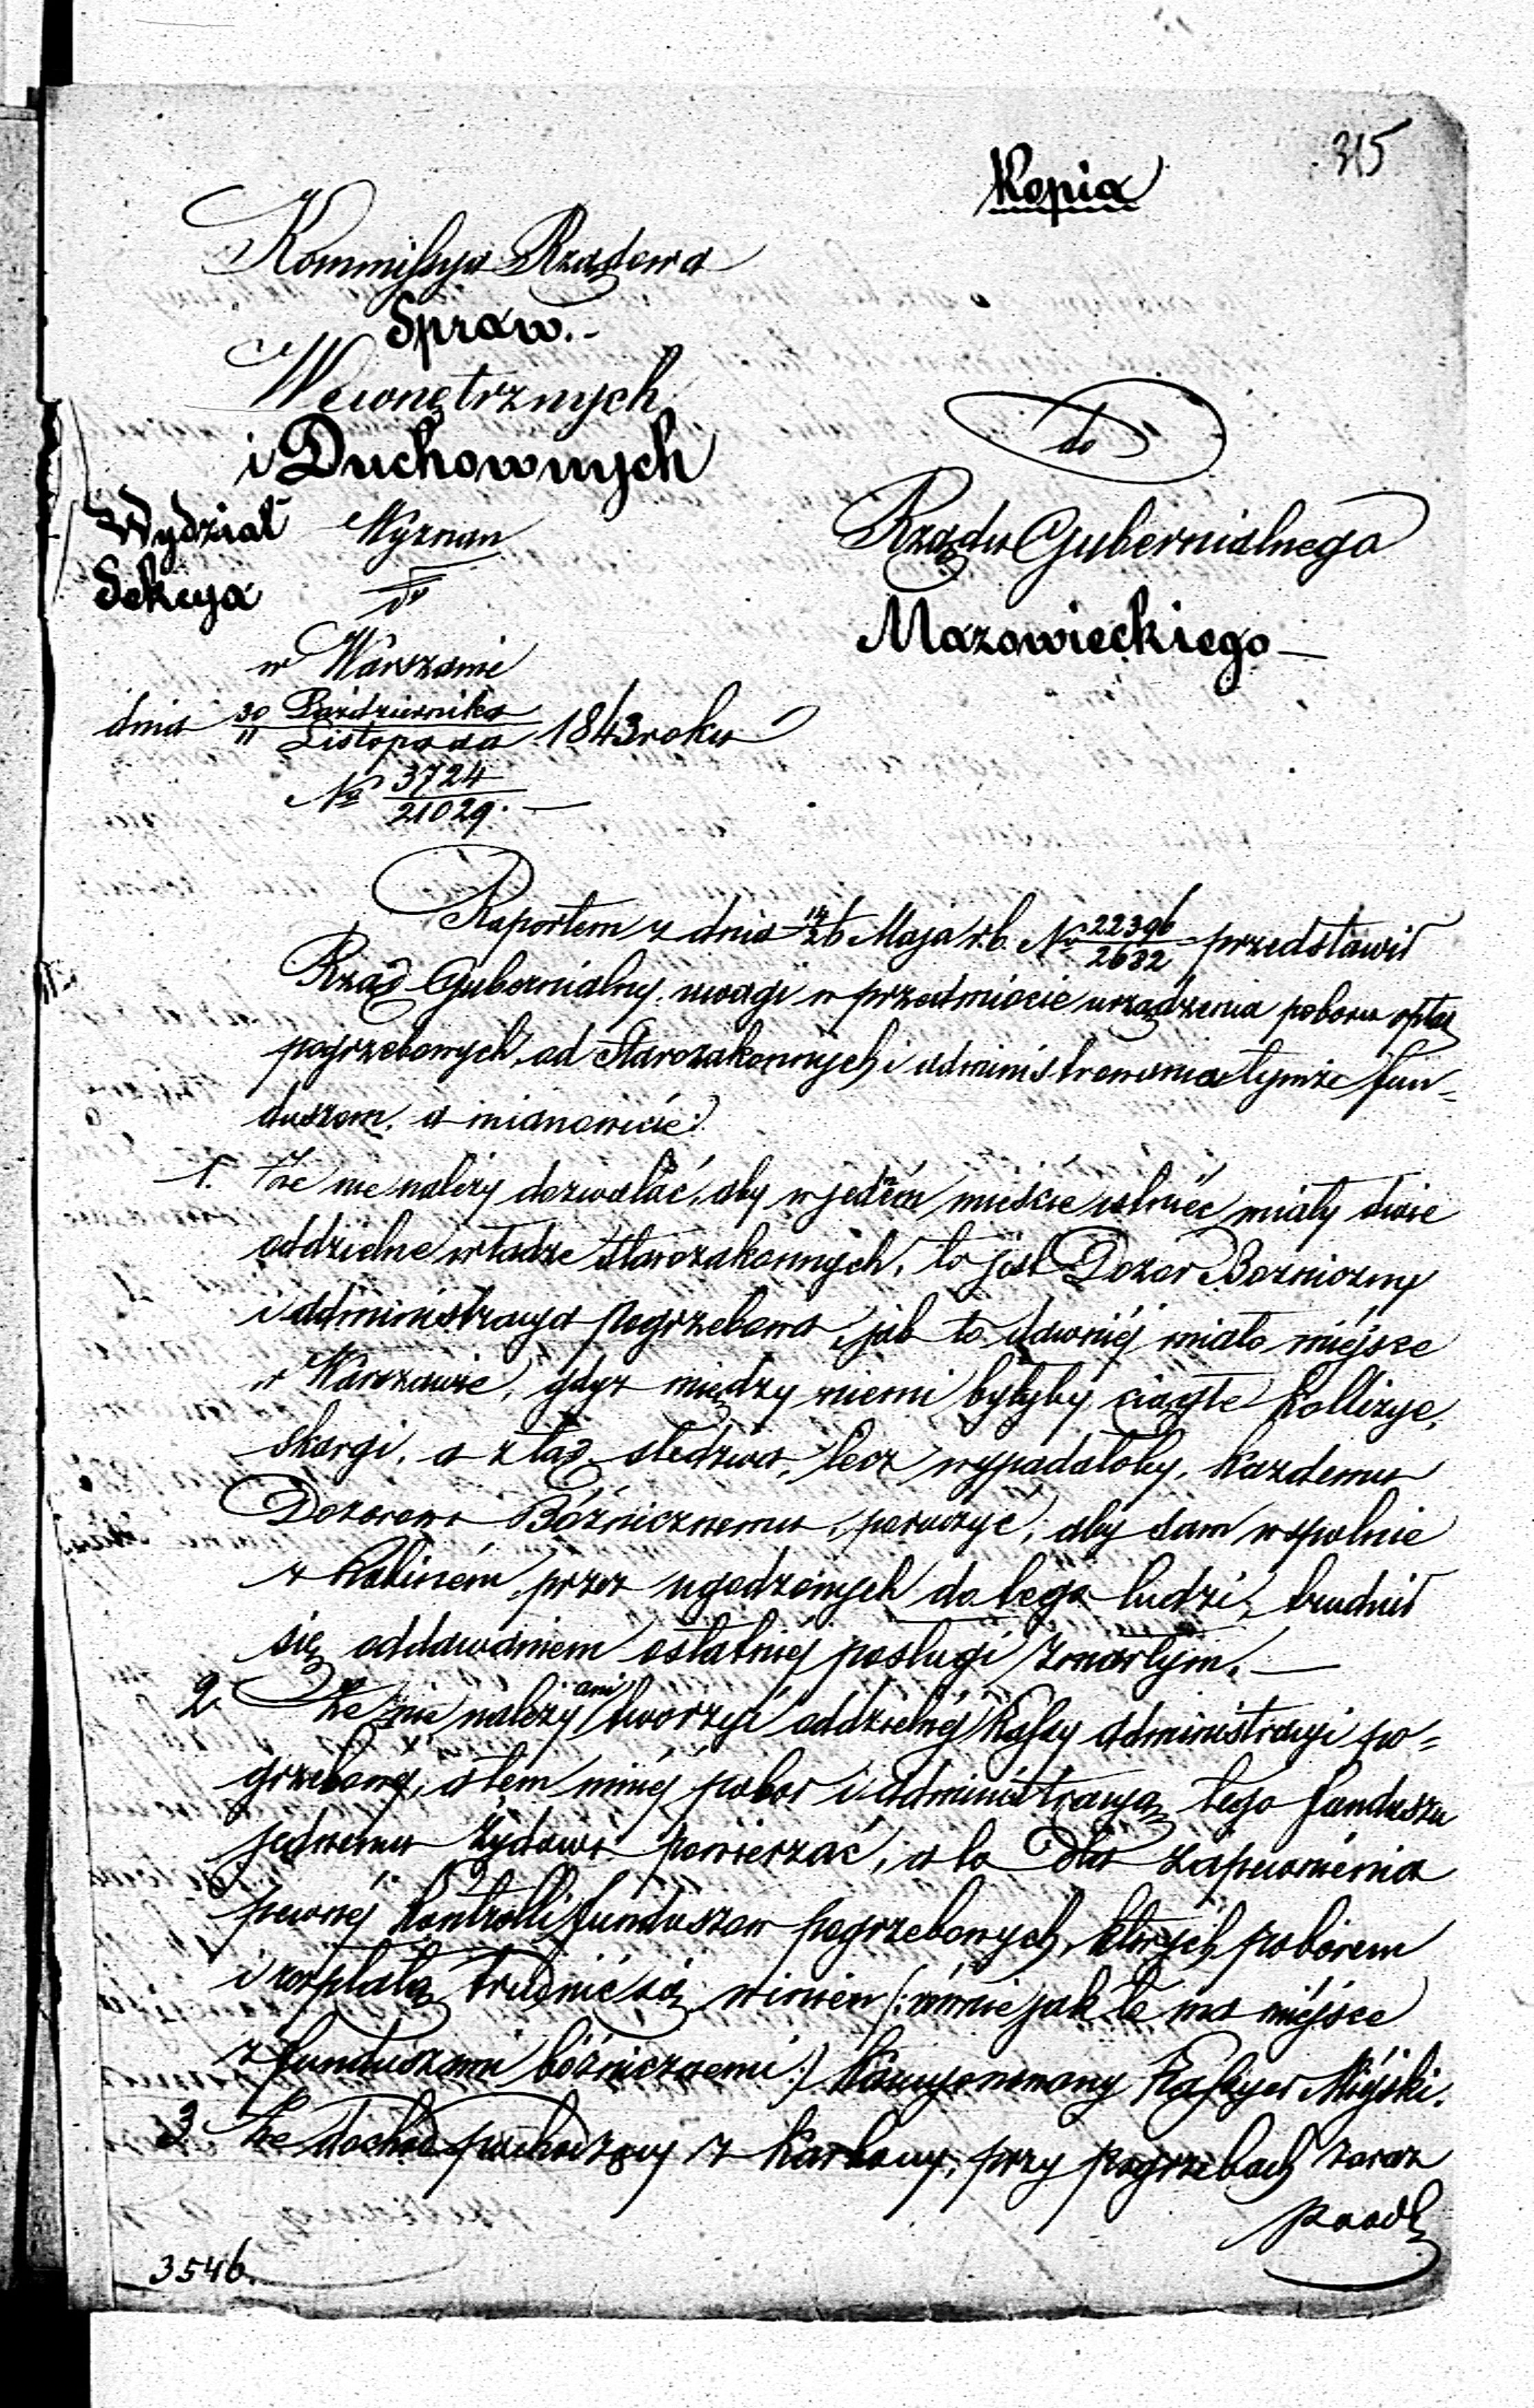 315
Kopia
Kommissya Rządowa
Spraw.-
Wewnętrznych
i Duchownych
Wydział Wyznan
Sekcya
w Warszawie
dnia 30 Października / 11 Listopada 1843 roku
No 3724 / 21029. —
do
Rządu Gubernialnego
Mazowieckiego —
Raportem z dnia 14/26 Maja r.b. No 22396 / 2632 przedstawił
Rząd Gubernialny, uwagi w przedmiocie urządzenia poboru opłat
pogrzebowych, od Starozakonnych i administrowania tymże fun-
duszem, a mianowicie:
1. Że nie należy dozwalać, aby w jedném mieście istnieć miały dwie
oddzielne władze Starozakonnych, to jest Dozor Bozniczny
i administracya pogrzebowa, jak to dawniéj miało miéjsce
w Warszawie, gdyż między niemi byłyby ciągłe kollizye,
skargi, a ztąd śledztwa, lecz wypadałoby, każdemu
Dozorowi Bóżnicznemu, poruczyć, aby sam wspolnie
z Rabinem, przez ugodzonych do tego ludzi, trudnił
się oddawaniem ostatniéj posługi zmarłym. —
2. Że nie należy ani tworzyć oddzielnéj Kassy administracyi po-
grzebowéj, a tem miniéj pobor i administracyą tego funduszu
jednemu żydowi powierzać, a to dla zapewnienia
pewnéj kontrolli funduszow pogrzebowych, ktorych poborem
i rozpłatą trudnić się winien (: rownie jak to ma miéjsce
z funduszami bóżnicznemi :) kaucyonowany Kassyer Miéjski.
3. Że dochod pochodzący z Karbony, przy pogrzebach zaraz
3546.